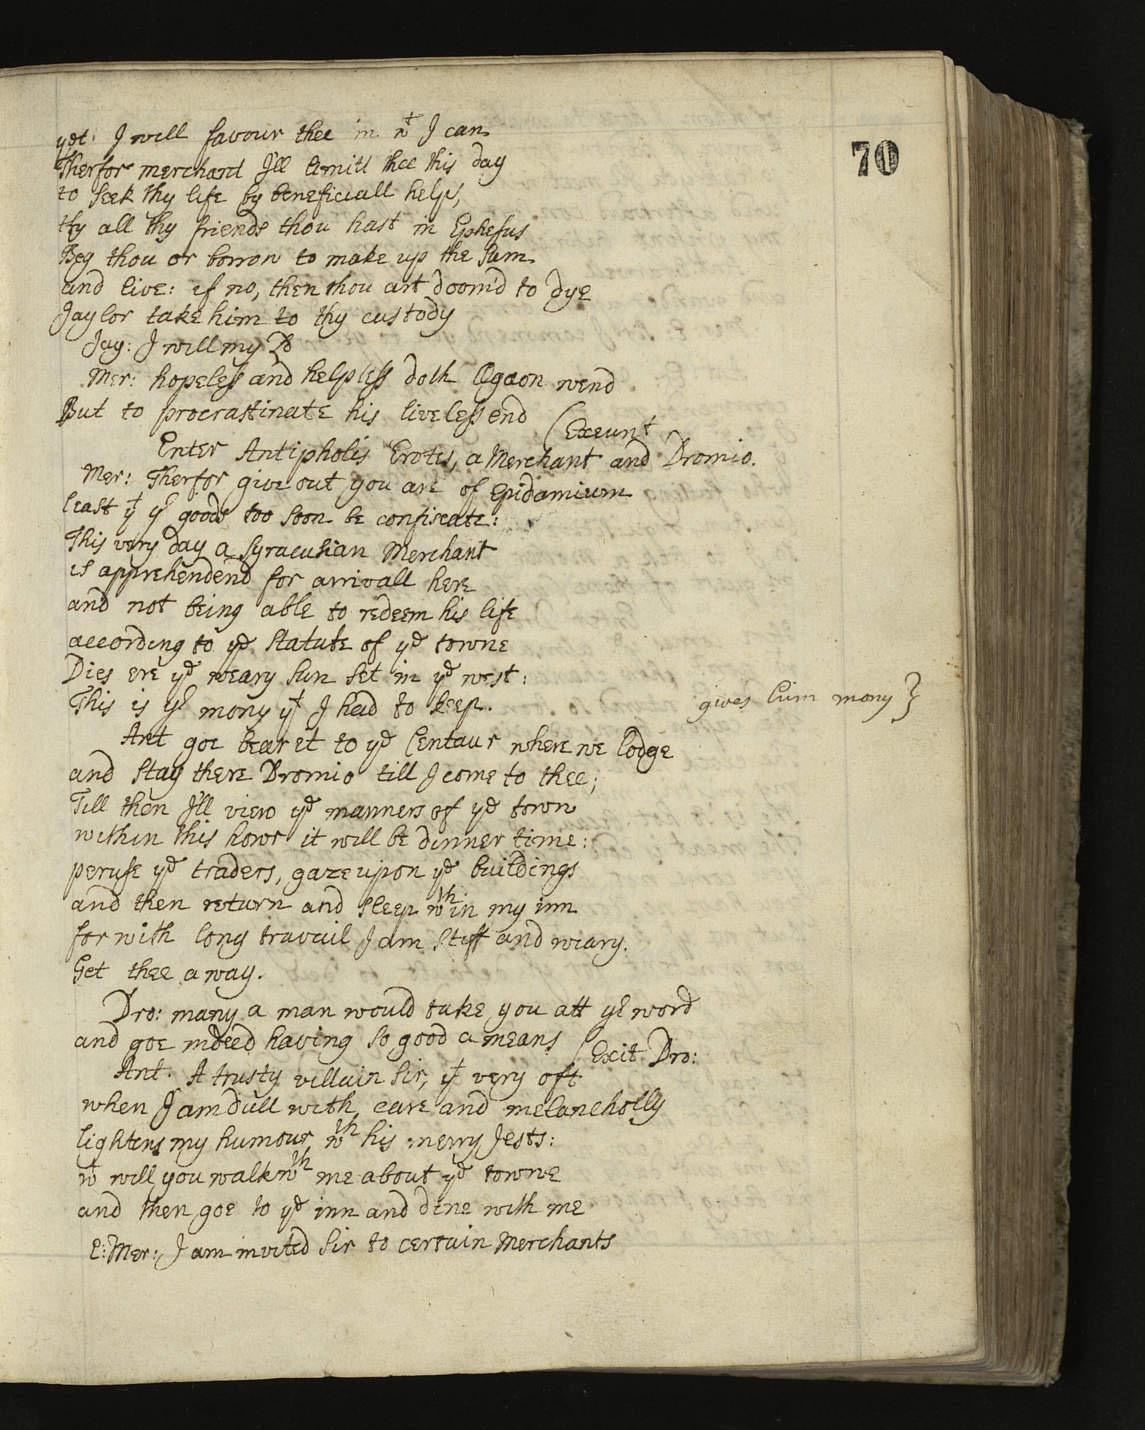 70
yet I will favour thee in wt I can
Therfor merchant I'll limitt thee this day
to seek thy life by beneficiall help,
try all thy friends thou hast in Ephesus
Beg thou or borrow to make up the sum
and live: if no, then thou art doom'd to dye
Jaylor take him to thy custody
Jay: I will my Lo
Mer: hopeless and helpless doth Egæon wend
But to procrastinate his liveless end
(Exeunt
Enter Antipholis Erotes, a Merchant and Dromio.
Mer: Therfor give out you are of Epidamium
least yt yr goods too soon be confiscate:
This very day a Syracusian Merchant
is apprehendend for arrivall here
and not being able to redeem his life
according to ye statute of ye towne
Dies ere ye weary sun set in ye west:
This is yr mony yt I had to keep.
gives him mony }
Ant goe bear it to ye Centaur where we lodge
and stay there Dromio till I come to thee;
Till then I'll view ye manners of ye town
within this howr it will be dinner time:
peruse ye traders, gaze upon ye buildings
and then return and sleep wthin my inn
for with long travail I am stiff and weary.
Get thee away.
Dro: many a man would take you att yr word
and goe indeed having so good a means
(Exit Dro:
Ant. A trusty villain sir, yt very oft
when I am dull with care and melancholly
lightens my humour wth his merry Jests:
wt will you walk wth me about ye towne
and then goe to ye inn and dine with me
E: Mer: I am invited sir to certain Merchants